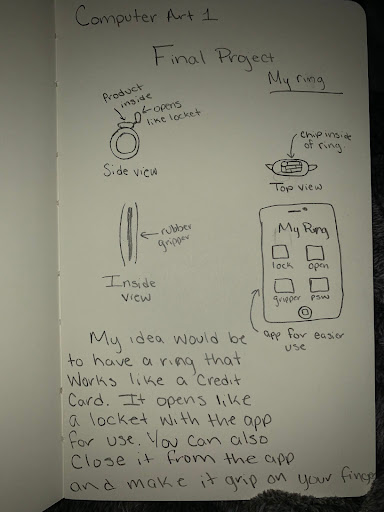 Computer Art 1
Final Project
My ring
Product
inside
opens
like locket
Side view
chip inside
of ring
Top view
rubber
gripper
Inside
view
My Ring
lock open
gripper psw
app for easier
use
My idea would be
to have a ring that
works like a Credit
Card. It opens like
a locket with the app
for use. You can also
Close it from the app
and make it grip on your finger